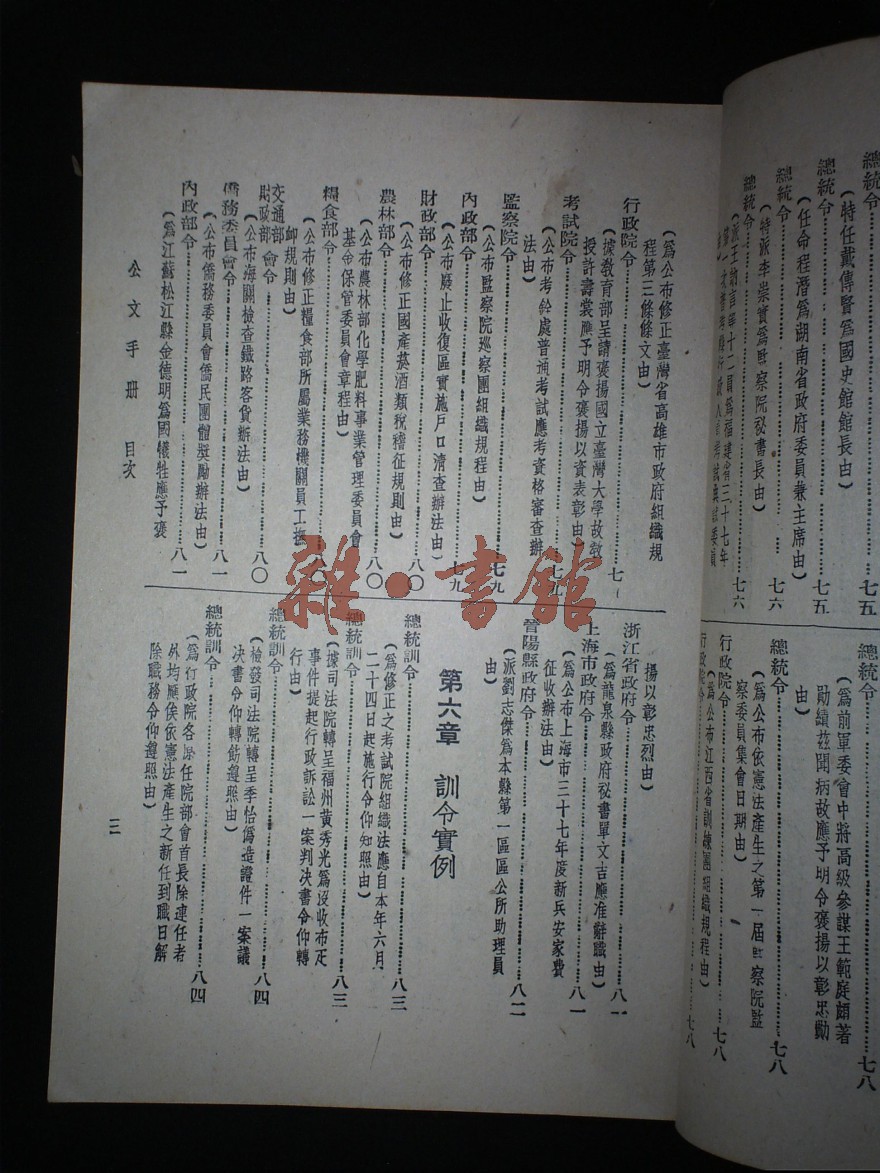 總統令……七五
(特任戴傳賢爲國史館館長由)
總統令……七五
(任命程潛爲湖南省政府委員兼主席由)
總統令……七六
(特派李崇實爲監察院祕書長由)
總統令……七六
總統令……七八
(爲前軍委會中將高級參謀王範庭頗著
勛績茲聞病故應予明令褒揚以彰忠勳
由)
總統令……七八
(爲公布依憲法產生之第一屆監察院監
察委員集會日期由)
行政院令……七八
(爲公布江西省訓練團組織規程由)
行政院令……七八
(爲公布修正臺灣省高雄市政府組織規
程第三條條文由)
行政院令……七
(據教育部呈請褒揚國立臺灣大學故教
授許壽裳應予明令褒揚以資表彰由)
考試院令……七九
(公布考銓處普通考試應考資格審查辦
法由)
監察院令……七九
(公布監察院巡察團組織規程由)
內政部令……七九
(公布廢止收復區實施戶口清查辦法由)
財政部令……八〇
(公布修正國產菸酒類稅稽征規則由)
農林部令……八〇
(公布農林部化學肥料事業管理委員會
基金保管委員會章程由)
糧食部令……八〇
(公布修正糧食部所屬業務機關員工撫
卹規則由)
交通部
財政部 會令……八〇
(公布海關檢查鐵路客貨辦法由)
僑務委員會令……八一
(公布僑務委員會僑民團體獎勵辦法由)
內政部令……八一
(爲江蘇松江縣金德明爲國犧牲應予褒
揚以彰忠烈由)
浙江省政府令……八一
(爲龍泉縣政府祕書單文吉應准辭職由)
上海市政府令……八一
(爲公布上海市三十七年度新兵安家費
征收辦法由)
晉陽縣政府令……八二
(派劉志傑爲本縣第一區區公所助理員
由)
第六章 訓令實例
總統訓令……八三
(爲修正之考試院組織法應自本年六月
二十四日起施行令仰知照由)
總統訓令……八三
(據司法院轉呈福州黃秀光爲沒收布疋
事件提起行政訴訟一案判決書令仰轉
行由)
總統訓令……八四
(檢發司法院轉呈季怡僞造證件一案議
決書令仰轉飭遵照由)
總統訓令……八四
(爲行政院各原任院部會首長除連任者
外均應俟依憲法產生之新任到職日解
除職務令仰遵照由)
公文手册 目次
三
雜·書館